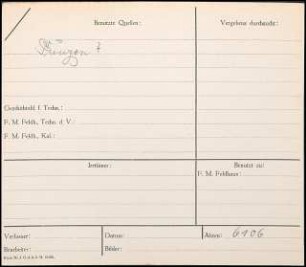 Benutzte Quellen:
Vergebens durchsucht:
Geschichtsbl. f. Techn.:
F. M. Feldh., Techn. d. V.:
F. M. Feldh., Kal.:
Irrtümer:
Benutzt zu:
F. M. Feldhaus:
Verfasser:
Datum:
Akten: 6906
Bearbeiter:
Bilder: